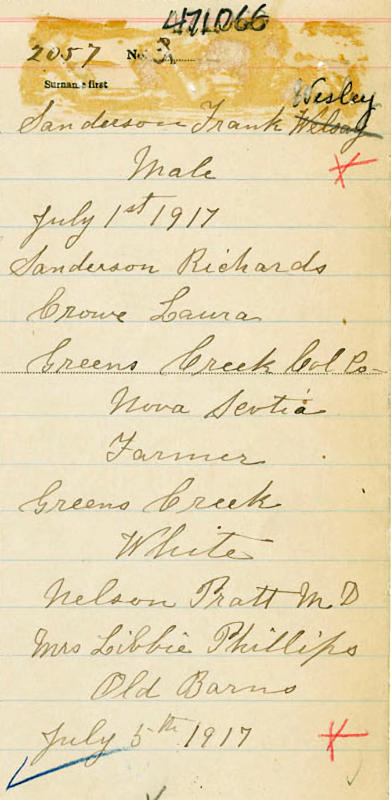 471066
2057 No.
Surname first
Wesley
Sanderson Frank Welsay
Male
July 1st 1917
Sanderson Richards
Crowe Laura
Greens Creek Col Co-
Nova Scotia
Farmer
Greens Creek
White
Nelson Pratt M D
Mrs Libbie Phillips
Old Barns
July 5th 1917